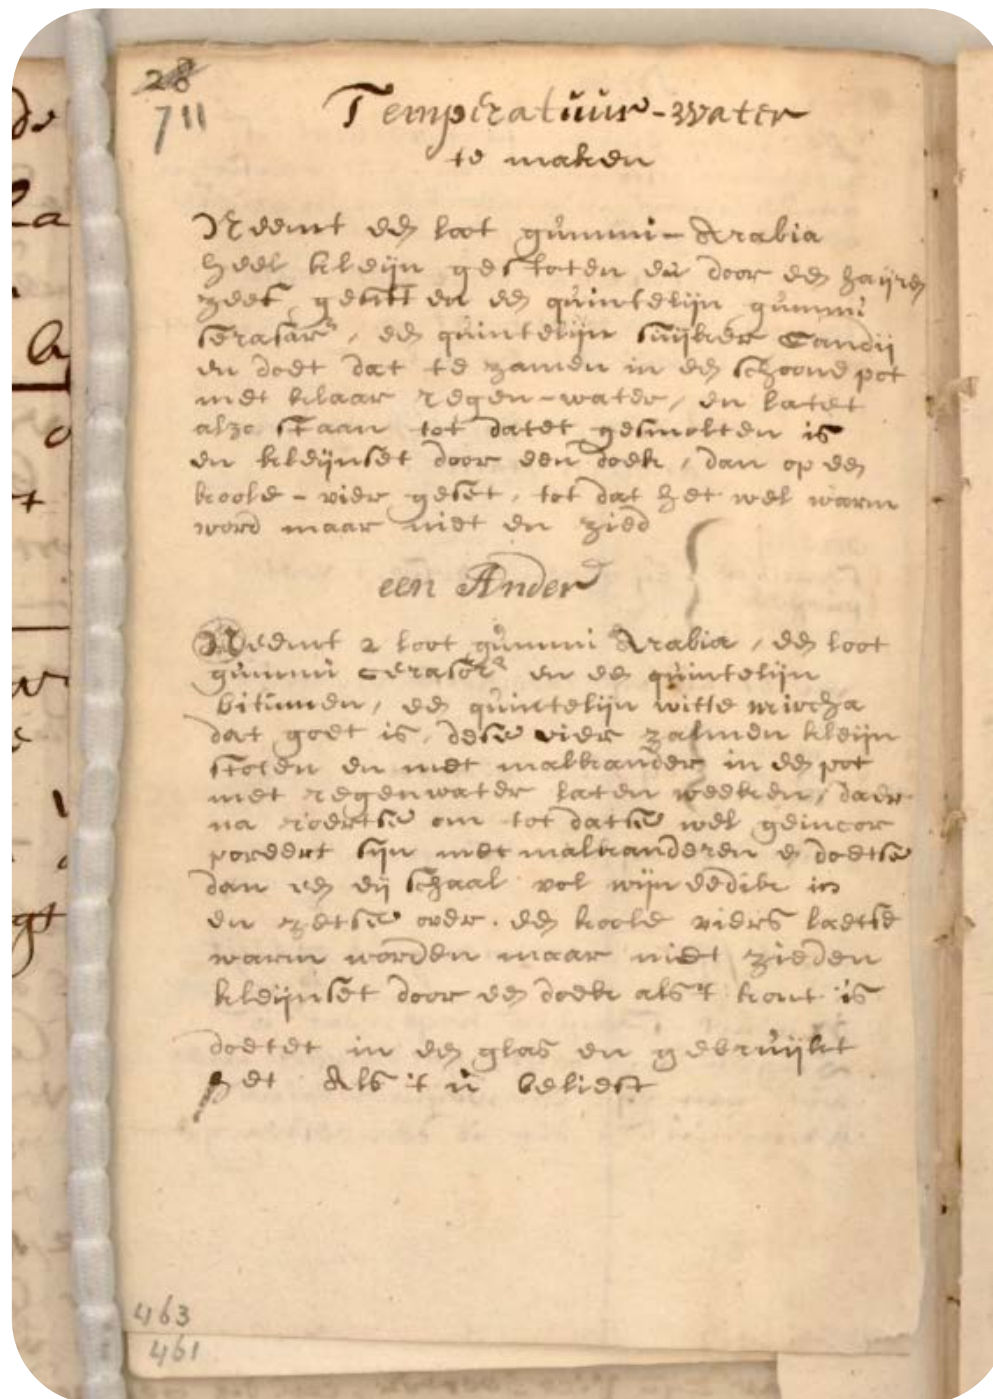 28
711
Temperatuur-Water
te maken
Neemt een loot gummi-Arabia
heel kleijn gestoten en door een haijren
zeef gesift en een quintelijn gummi
serasarũ, een quintelijn suijker Candij
en doet dat te zamen in een schoone pot
met klaar regen-water, en latet
alzo staan tot datet gesmolten is
en kleijnset door een doek, dan op een
koole-vier geset, tot dat het wel warm
word maar niet en zied
een Ander
Neemt 2 loot gummi Arabia, een loot
gummi cerasorũ en een quintelijn
bitumen, een quintelijn witte
dat goet is, dese vier zalmen kleijn
stoten en met malkander in een pot
met regenwater laten weeken, daer
na roertse om tot datse wel geincor
poreert sijn met malkanderen en doetse
dan een eij schaal vol wijn eedik in
en zetse over een koole viers laetse
warm worden maar niet zieden
kleijnset door een doek als 't kout is
doetet in een glas en gebruijkt
het Als 't u beliest
463
461
de
la
t
gt